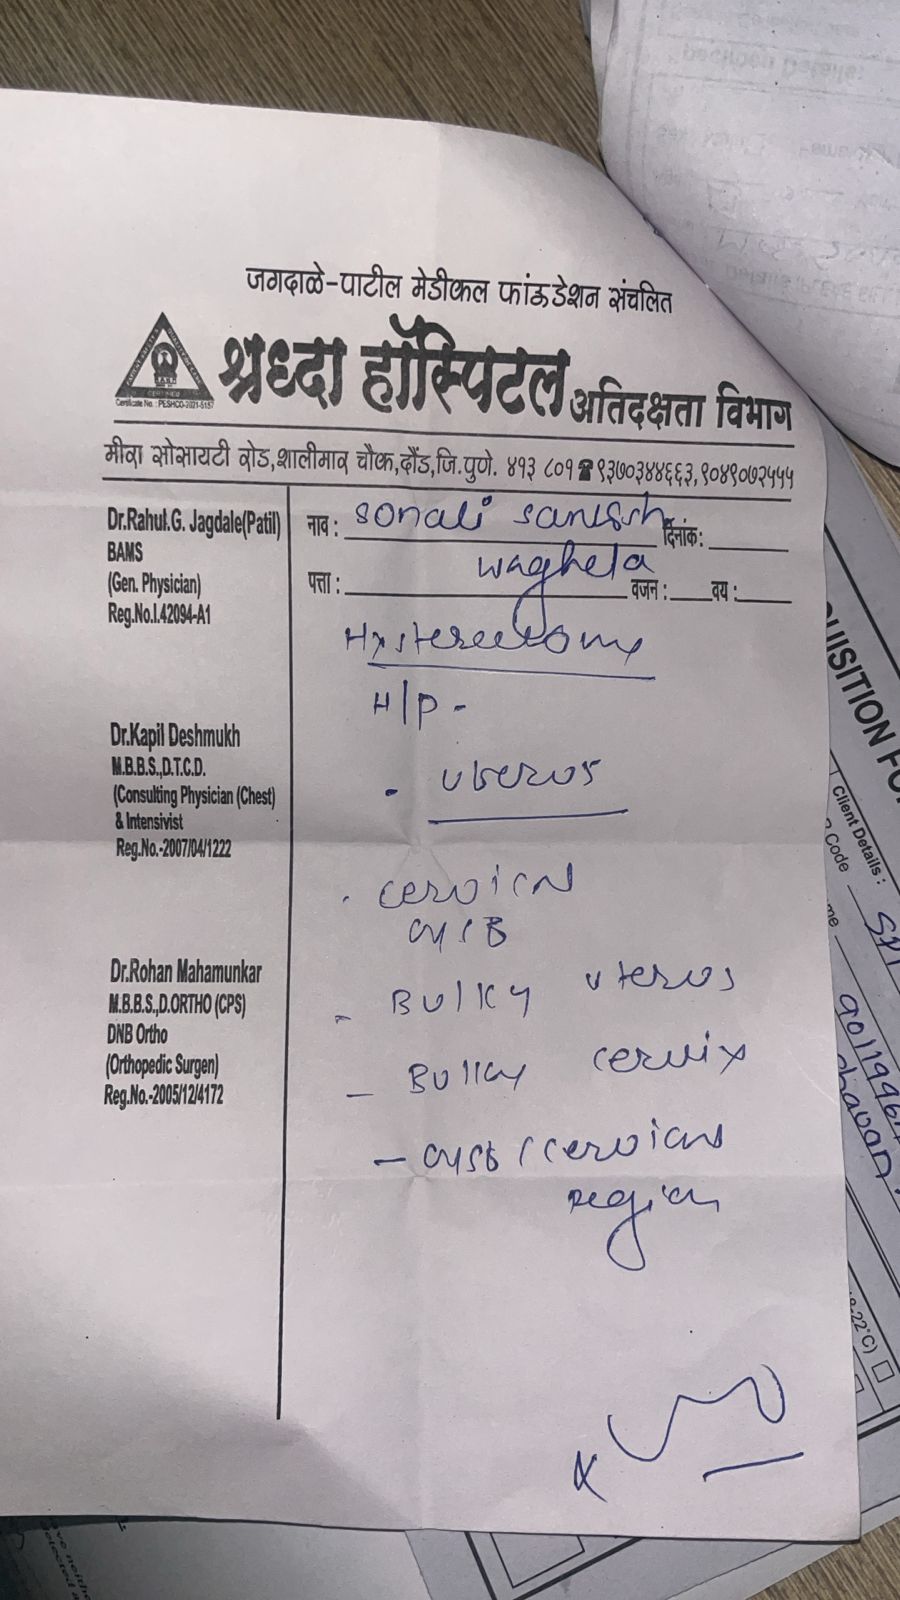 जगदाळे-पाटील मेडीकल फांऊडेशन संचलित
श्रध्दा हॉस्पिटल अतिदक्षता विभाग
Certificate No. : PESHCO-2021-5157
मीरा सोसायटी रोड,शालीमार चौक,दौंड,जि.पुणे. ४१३ ८०१ ☎ ९३७०३४४६६३,९०४९०७२५५५
Dr.Rahul.G. Jagdale(Patil)
BAMS
(Gen. Physician)
Reg.No.I.42094-A1
Dr.Kapil Deshmukh
M.B.B.S.,D.T.C.D.
(Consulting Physician (Chest)
& Intensivist
Reg.No.-2007/04/1222
Dr.Rohan Mahamunkar
M.B.B.S.,D.ORTHO (CPS)
DNB Ortho
(Orthopedic Surgen)
Reg.No.-2005/12/4172
नाव : sonali दिनांक:
waghela
पत्ता : वजन : वय :
Hysterectomy
H/P -
. uterus
. cervical
cyst
- Bulky uterus
- Bulky cervix
- cyst cervical
region
UISITION FO
Client Details :
Code
chavan
22°C)